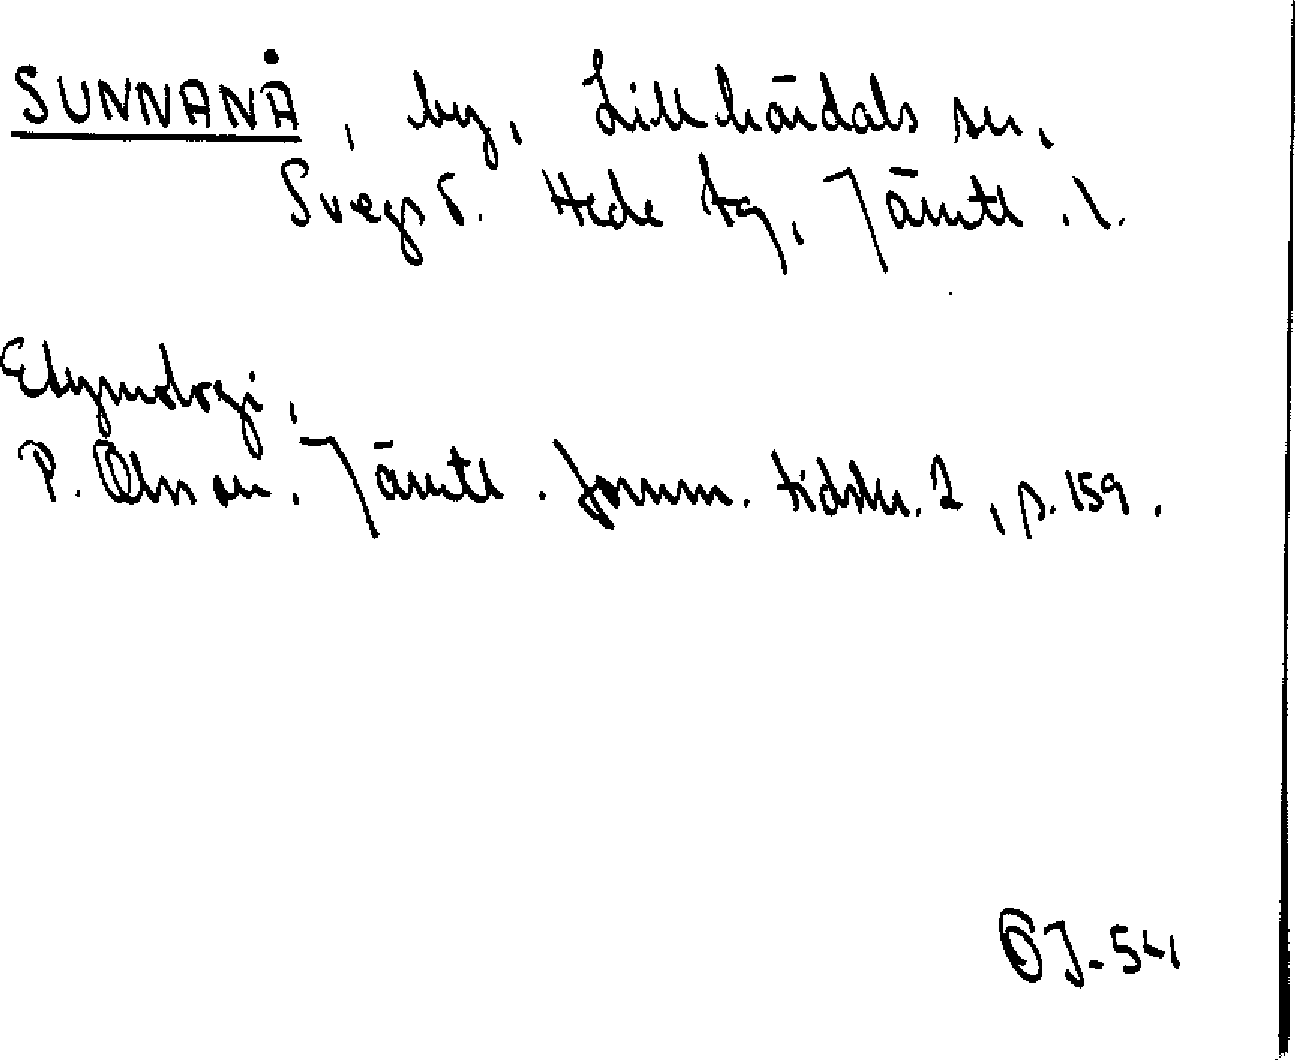 SUNNANÅ, by, Lillhärdals sn,
Svegs o. Hede tg, Jämtl. l.
Etymologi,
P. Olsson, Jämtl. fornm. tidskr. 2, p. 159.